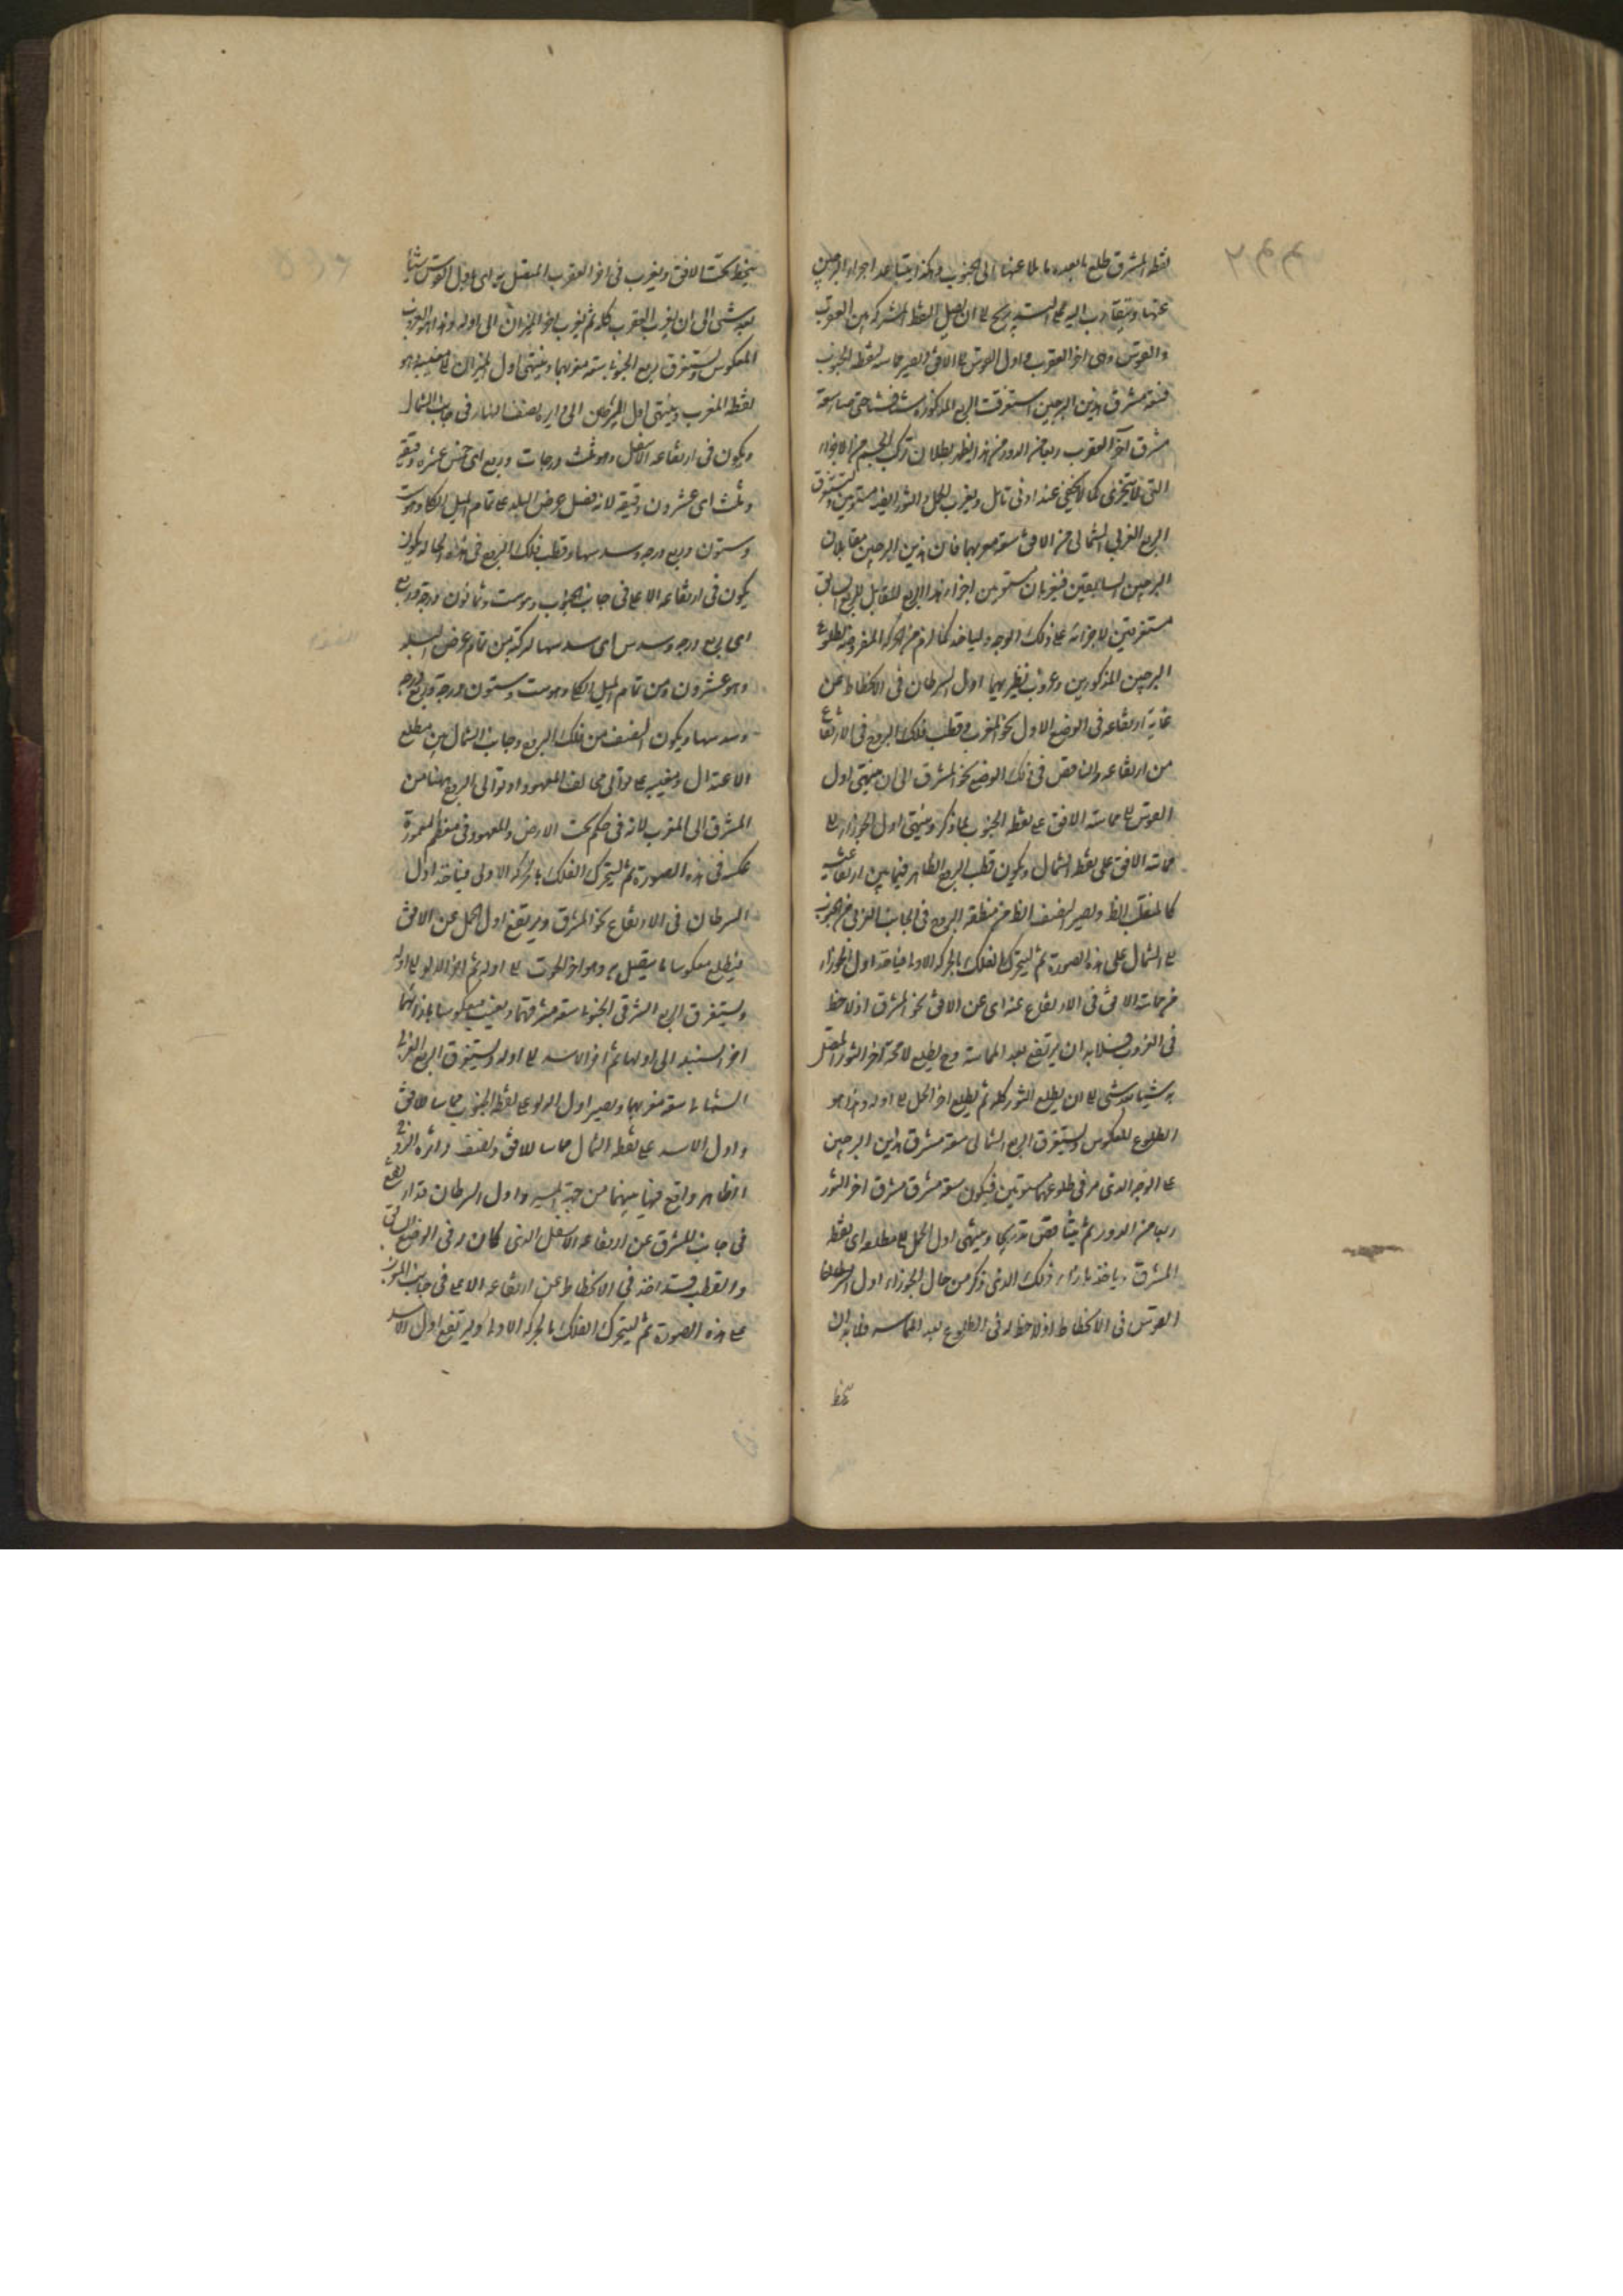 نقطه المشرق طلع ما بعده مايلا عنها الى الجنوب وهكذا يتباعد اجزاء البرجين
عنها ويتقارب اليه على التدريج الى ان يصل النقطة المشتركة بين العقرب
والقوس وهى اخر العقرب واول القوس الى الافق ويصير مماسه لنقطة الجنوب
فسعة مشرق هذين البرجين استغرقت الربع المذكور شيئا فشيئا حتى صار سعة
مشرق آخر العقرب ربعا من الدور ومن هذا يظهر بطلان تركب الجسم من الاجزاء
التى لا يتجزى كما لا يخفى عند ادنى تامل ويغرب الحمل والثور ايضا مستويين ويستغرق
الربع الغربى الشمالى من الافق سعة مغربهما فان هذين البرجين مقابلان
البرجين السابقين فيغربان مستويين اجزاء هذا الربع المقابل للربع السابق
مستغرقين لاجزائه على ذلك الوجه وليأخذ كما لزم من الحركة المفروضة لطلوع
البرجين المذكورين وغروب نظيريهما اول السرطان فى الانحطاط عن
غاية ارتفاعه فى الوضع الاول نحو المغرب وقطب فلك البروج فى الارتفاع
من ارتفاعه الناقص فى ذلك الوضع نحو المشرق الى ان ينتهى اول
القوس الى مماسة الافق على نقطة الجنوب لما ذكر وينتهى اول الجوزاء الى
مماسة الافق على نقطة الشمال ويكون قطب البروج الظاهر فيما بين ارتفاعيه
كالمنقلب الظ ويصير النصف الظ من منطقة البروج فى الجانب الغربى من الجنوب
الى الشمال على هذه الصورة ثم ليتحرك الفلك بالحركة الاولى فياخذ اول الجوزاء
من مماسة الافق فى الارتفاع عنه اى عن الافق نحو المشرق اذ لا حظ
فى الغروب فلا بد ان يرتفع بعد المماسة وح يطلع لا محة آخر الثور المتصل
به شيئا بعد شى الى ان يطلع الثور كله ثم يطلع اخر الحمل الى اوله وهذا هو
الطلوع المعكوس ويستغرق الربع الشمالى سعة مشرق هذين البرجين
على الوجه الذى مر فى طلوعهما مستويين فيكون سعة مشرق اخر الثور
ربعا من الدور ثم يتناقص تدريجا وينتهى اول الحمل الى مطلعه اى نقطة
المشرق وياخذ بازاء ذلك الذى ذكر من حال الجوزاء اول
القوس فى الانحطاط اذ لا حظ له فى الطلوع بعد المماسه فلا بد ان
ينحط
ينحط تحت الافق ويغرب فى اخر العقرب المتصل به اى باول القوس شيئا
بعد شى الى ان يغرب العقرب كله ثم يغرب اخر الميزان الى اوله وهذا هو الغروب
المعكوس ويستغرق الربع الجنوبى سعة مغربهما وينتهى اول الميزان الى مغيبه وهو
نقطة المغرب وينتهى اول السرطان الى دايرة نصف النهار فى جانب الشمال
ويكون فى ارتفاعه الاسفل وهو ثلث درجات وربع اى خمس عشره دقيقه
وثلث اى عشرون دقيقه لانه فضل عرض البلد على تمام الميل الكلى وهو ست
وستون وربع درجة وسدسها وقطب فلك البروج فى هذه الحال يكون
يكون فى ارتفاعه الاعلى فى جانب الجنوب وهو ست وثمانون درجة وربع
اى ربع درجة وسدس اى سدسها لتركبه من تمام عرض البلد
وهو عشرون ومن تمام الميل الكلى وهو ست وستون درجة وربع درجة
وسدسها ويكون النصف من فلك البروج وجانب الشمال بين مطلع
الاعتدال ومغيبه على توالى مخالف المعهود اذ توالى البروج ههنا من
المشرق الى المغرب لانه فى حكم تحت الارض والمعهود فى معظم المعمورة
عكسه فى هذه الصورة ثم ليتحرك الفلك بالحركة الاولى فياخذ اول
السرطان فى الارتفاع نحو المشرق ويرتفع اول الحمل عن الافق
فيطلع معكوسا ما يتصل به وهو اخر الحوت الى اوله ثم اخر الدلو الى اوله
ويستغرق الربع الشرقى الجنوبى سعة مشرقهما ويغيب معكوسا بازائهما
اخر السنبلة الى اولها ثم اخر الاسد الى اوله ويستغرق الربع الغربى
الشمالى سعة مغربهما ويصير اول الدلو على نقطة الجنوب مماسا للافق
واول الاسد على نقطة الشمال مماسا للافق ونصف دائرة البروج
الظاهر واقع فيما بينهما من جهة واول السرطان قد ارتفع
فى جانب المشرق عن ارتفاعه الاسفل الذى كان له فى الوضع السابق
والقطب قد اخذ فى الانحطاط عن ارتفاعه الاعلى فى جانب المغرب
على هذه الصورة ثم ليتحرك الفلك بالحركة الاولى وليرتفع اول الاسد